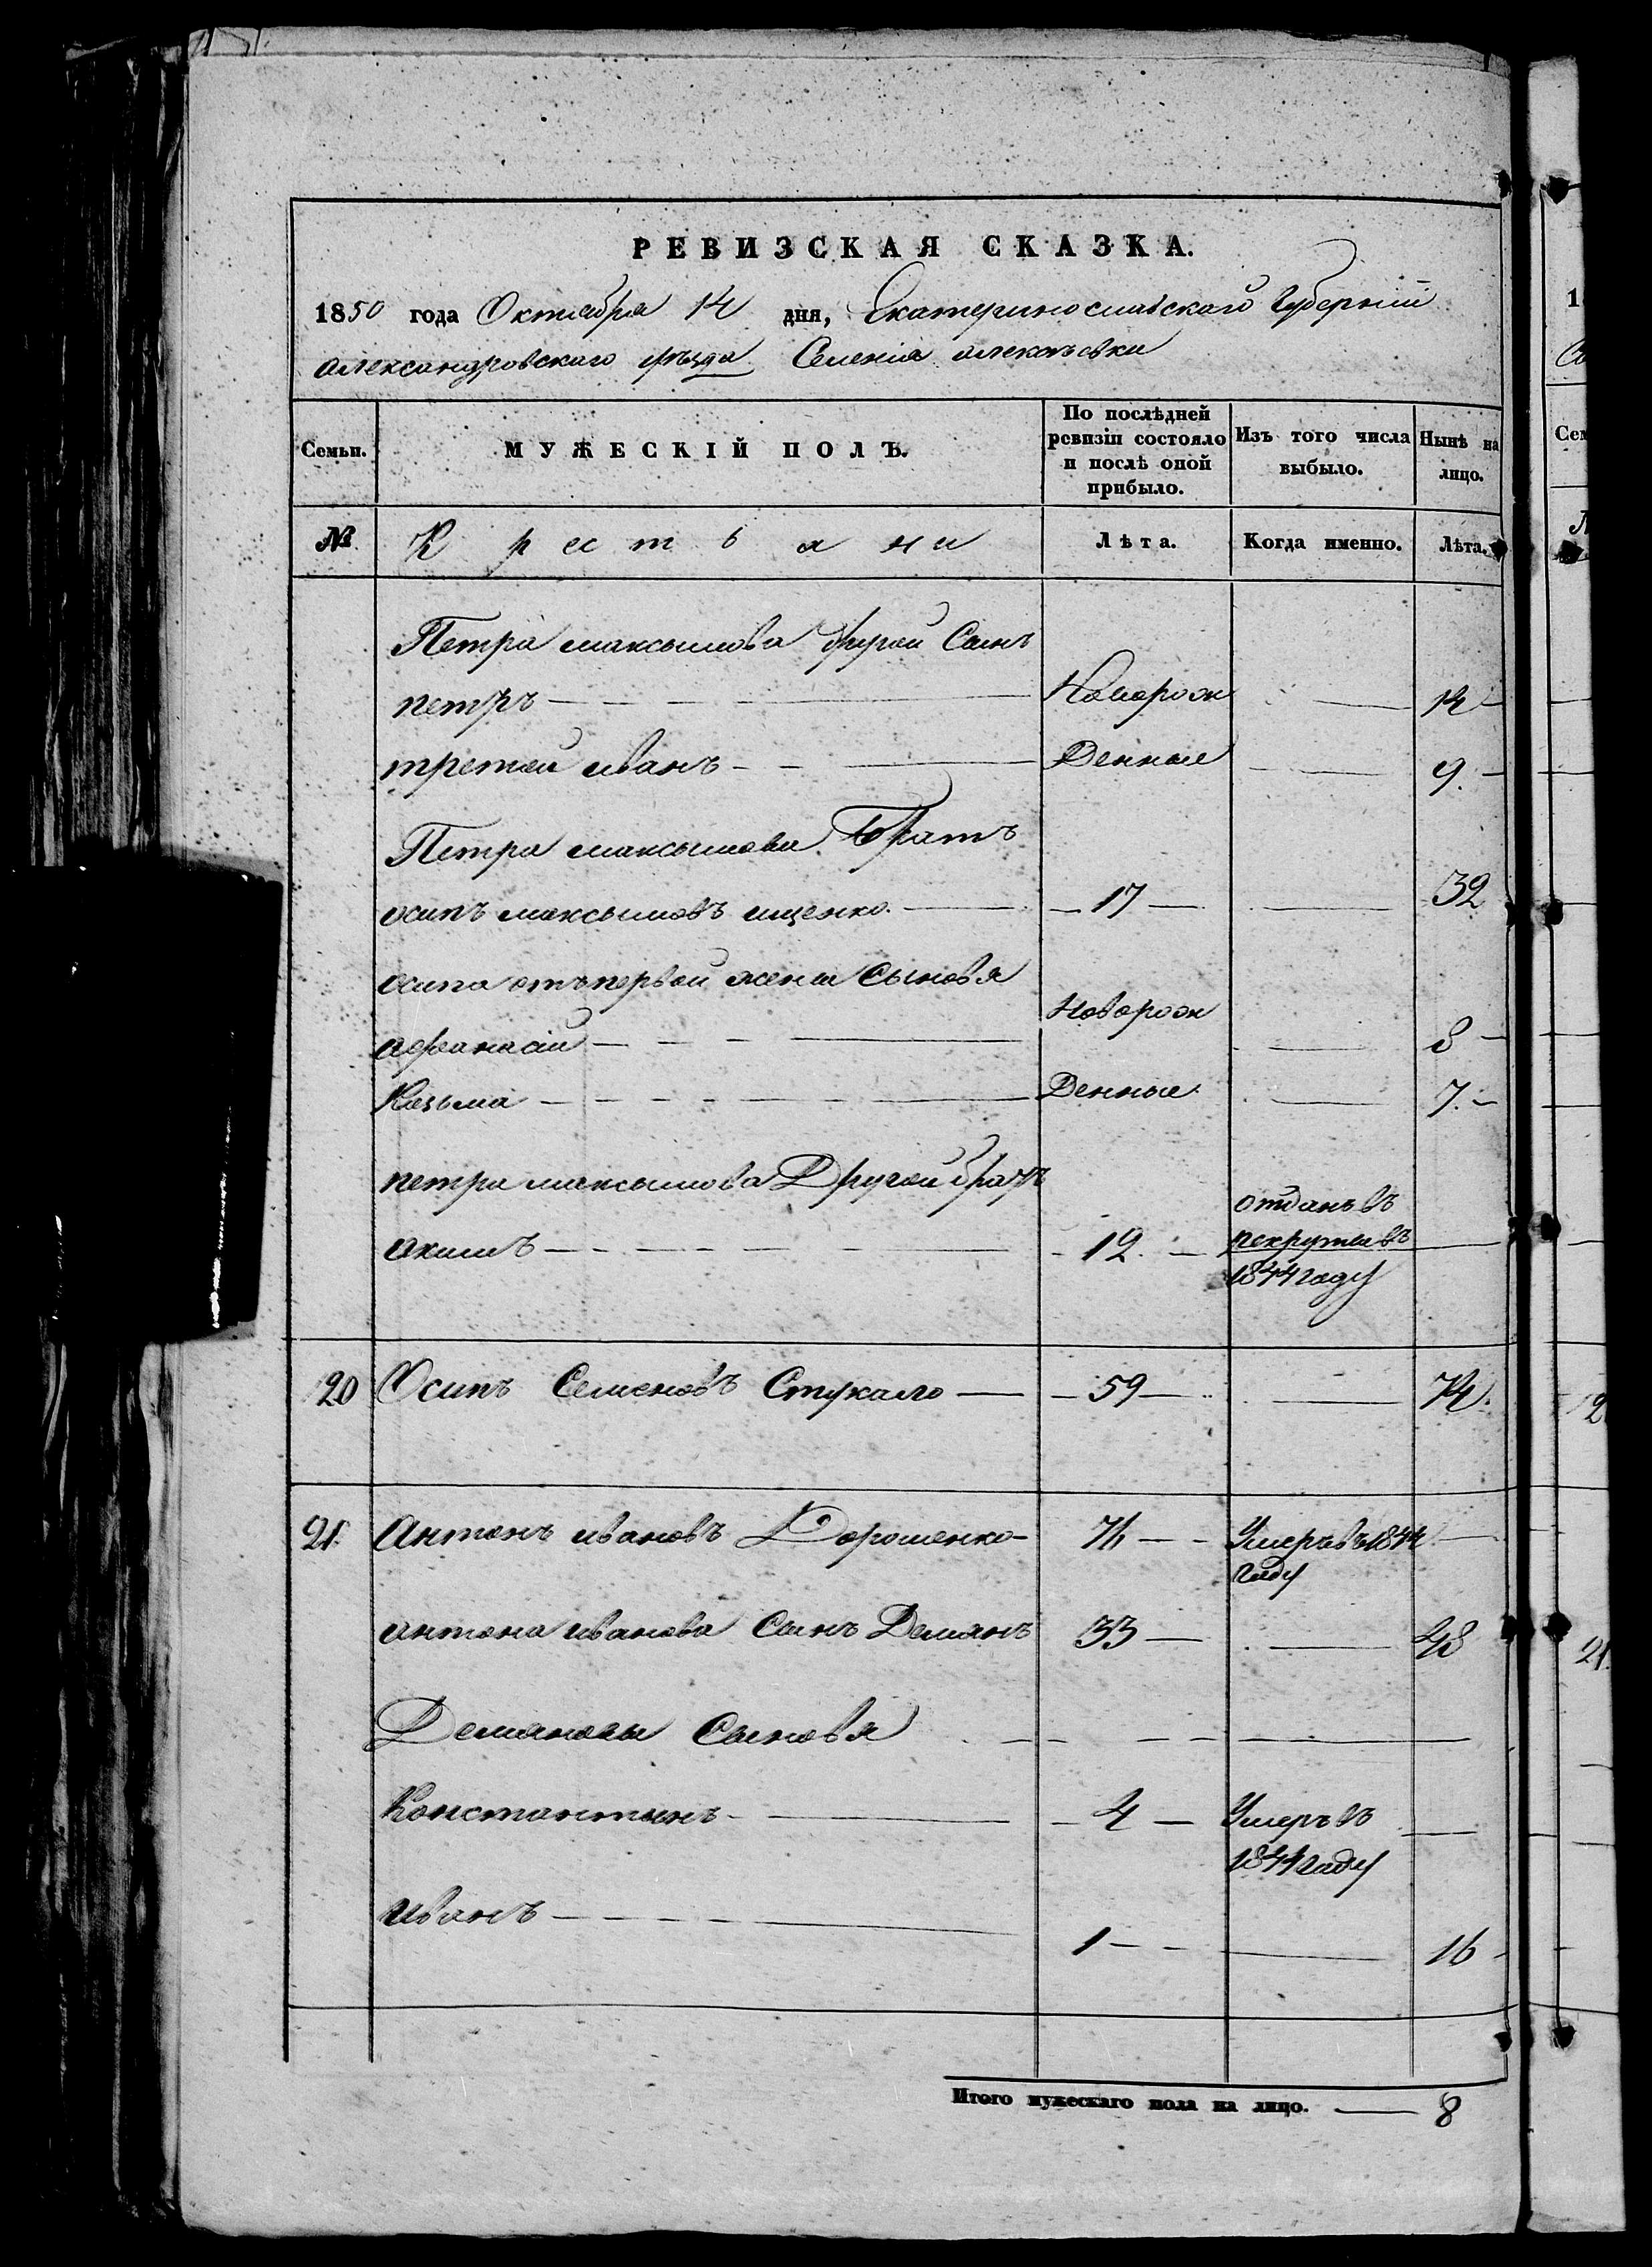 РЕВИЗСКАЯ СКАЗКА.
1850 года Октября 14 дня, Екатеринославского Губерніи
Александровскаго уѣзда Селенія алексѣевки
Семьи. МУЖЕСКІЙ ПОЛЪ. По послѣдней ревизіи состояло и послѣ оной прибыло. Изъ того числа выбыло. Нынѣ на лицо.
№ Крестьяни Лѣта. Когда именно. Лѣта.
Петра максымова другой Сынъ
петръ Новорож 14
третой иванъ Денные 9.
Петра максымова Братъ
осипъ максымовъ ищенко. 17 32
осипа отъ первой жены Сыновя
афанасій Новорож 8
Козьма Денные 7.
петра максымова Другой братъ
акимъ 12. отданъ въ рекруты въ 1844 году
20 Осипъ Семеновъ Стукало 59 74.
21. Антонъ ивановъ Дорошенко 76 Умеръ въ 1844 году
антона иванова Сынъ Демянъ 33 48
Демяновы Сыновя
Константынъ 4 Умеръ въ 1844 году
иванъ 1 16
Итого мужескаго пола на лицо. 8
1
Се
№
2
21.